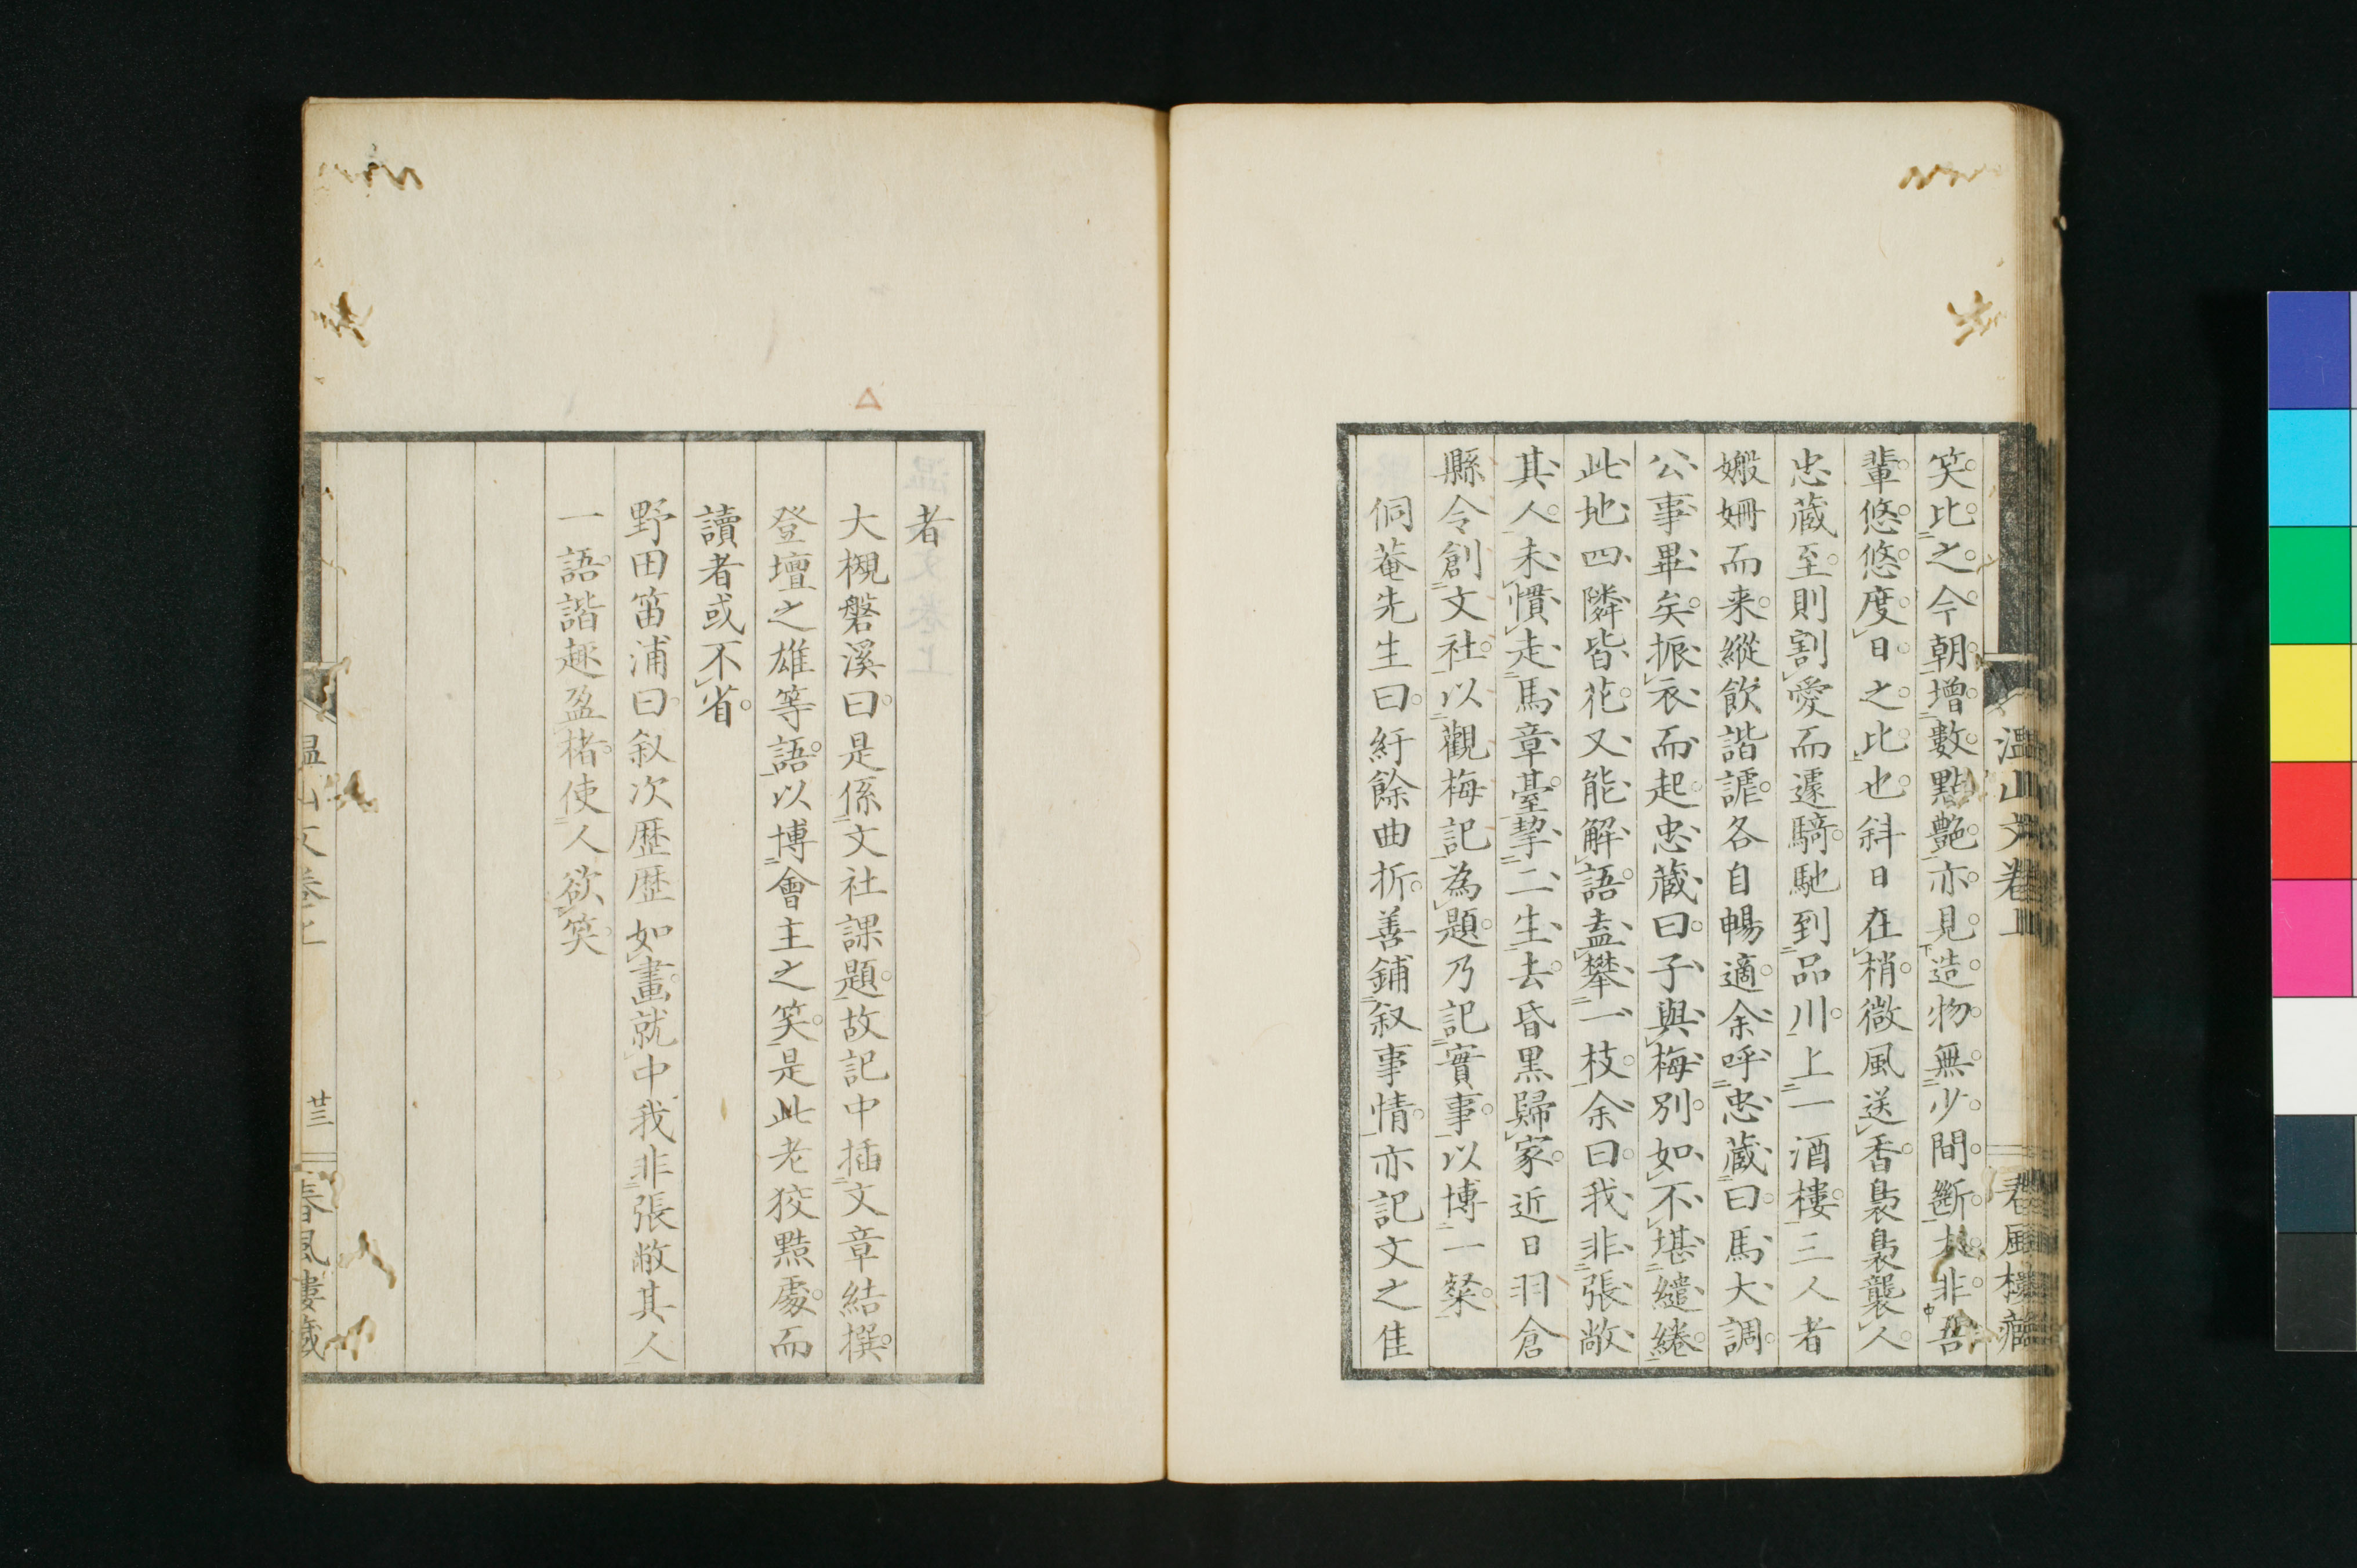 温山文卷上
春風樓藏
笑比之今朝增數點艶亦見造物無少間斷非吾
輩悠悠度日之比也斜日在梢微風送香裊裊襲人
忠蔵至則割愛而遽騎馳到品川上一酒樓三人者
媻姍而来縱飲諧謔各自暢適余呼忠蔵曰馬大調
公事畢矣振衣而起忠蔵曰子與梅別如不堪繾綣
此地四隣皆花又能解語盍攀一枝余曰我非張敞
其人未慣走馬章臺挈二生去昏黒歸家近日羽倉
縣令創文社以觀梅記為題乃記實事以博一粲
侗菴先生曰紆餘曲折善鋪叙事情亦記文之佳
者
大槻磐溪曰是係文社課題故記中插文章結撰
登壇之雄等語以博會主之笑是此老狡黠處而
讀者或不省
野田笛浦曰叙次歴歴如畫就中我非張敞其人
一語諧趣盈楮使人欲笑
温山文卷上
廿三
春風樓藏